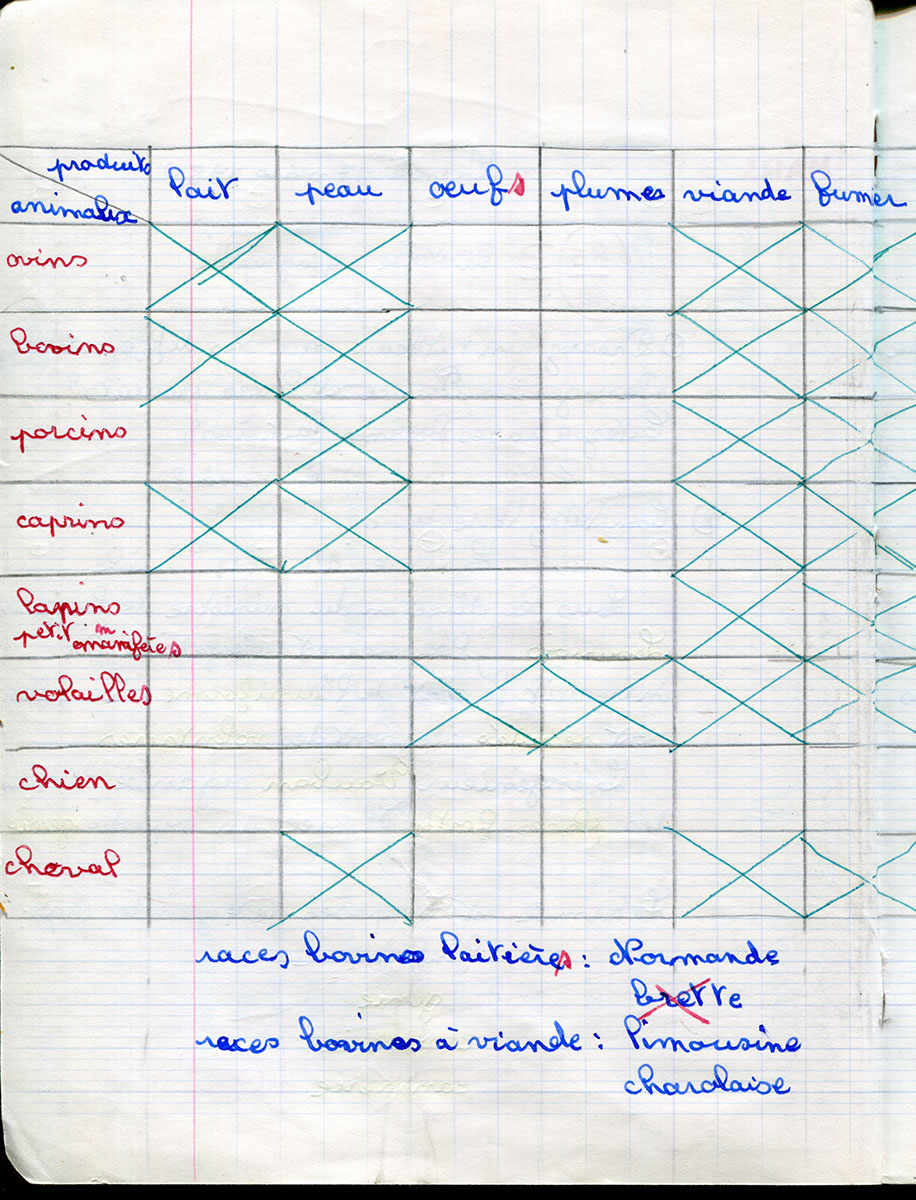 produits
animaux
lait peau oeufs plumes viande fumer
ovins
bovins
porcins
caprins
lapins
petit mamifères
volailles
chien
cheval
races bovines laitières : Normande
brette
races bovines à viande : limousine
charolaise